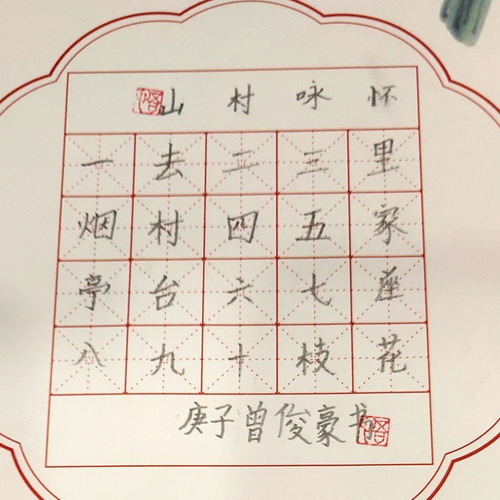 山村咏怀
一去二三里
烟村四五家
亭台六七座
八九十枝花
庚子曾俊豪书